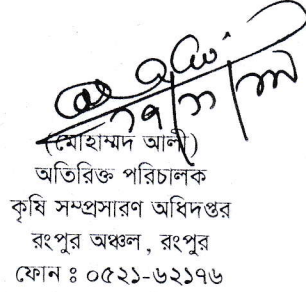 (মোহাম্মদ আলী)
অতিরিক্ত পরিচালক
কৃষি সম্প্রসারণ অধিদপ্তর
রংপুর অঞ্চল , রংপুর
ফোন ঃ ০৫২১-৬২১৭৬